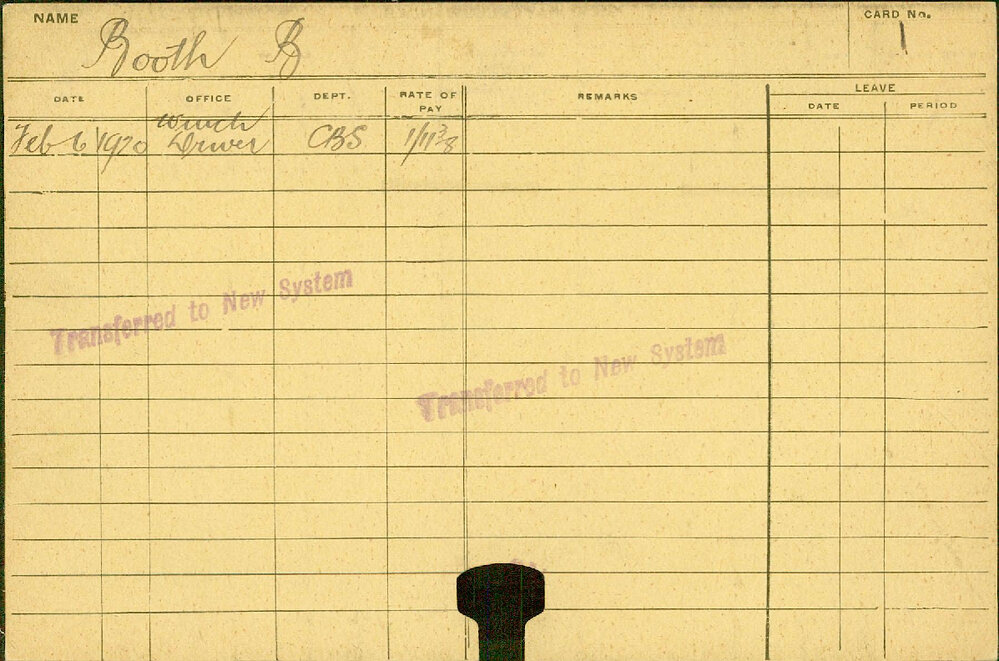 NAME
Booth B
CARD No.
1
DATE OFFICE DEPT. RATE OF PAY REMARKS LEAVE
DATE PERIOD
Feb 6 1920 Winch Driver CBS 1/11 3/8
Transferred to New System
Transferred to New System